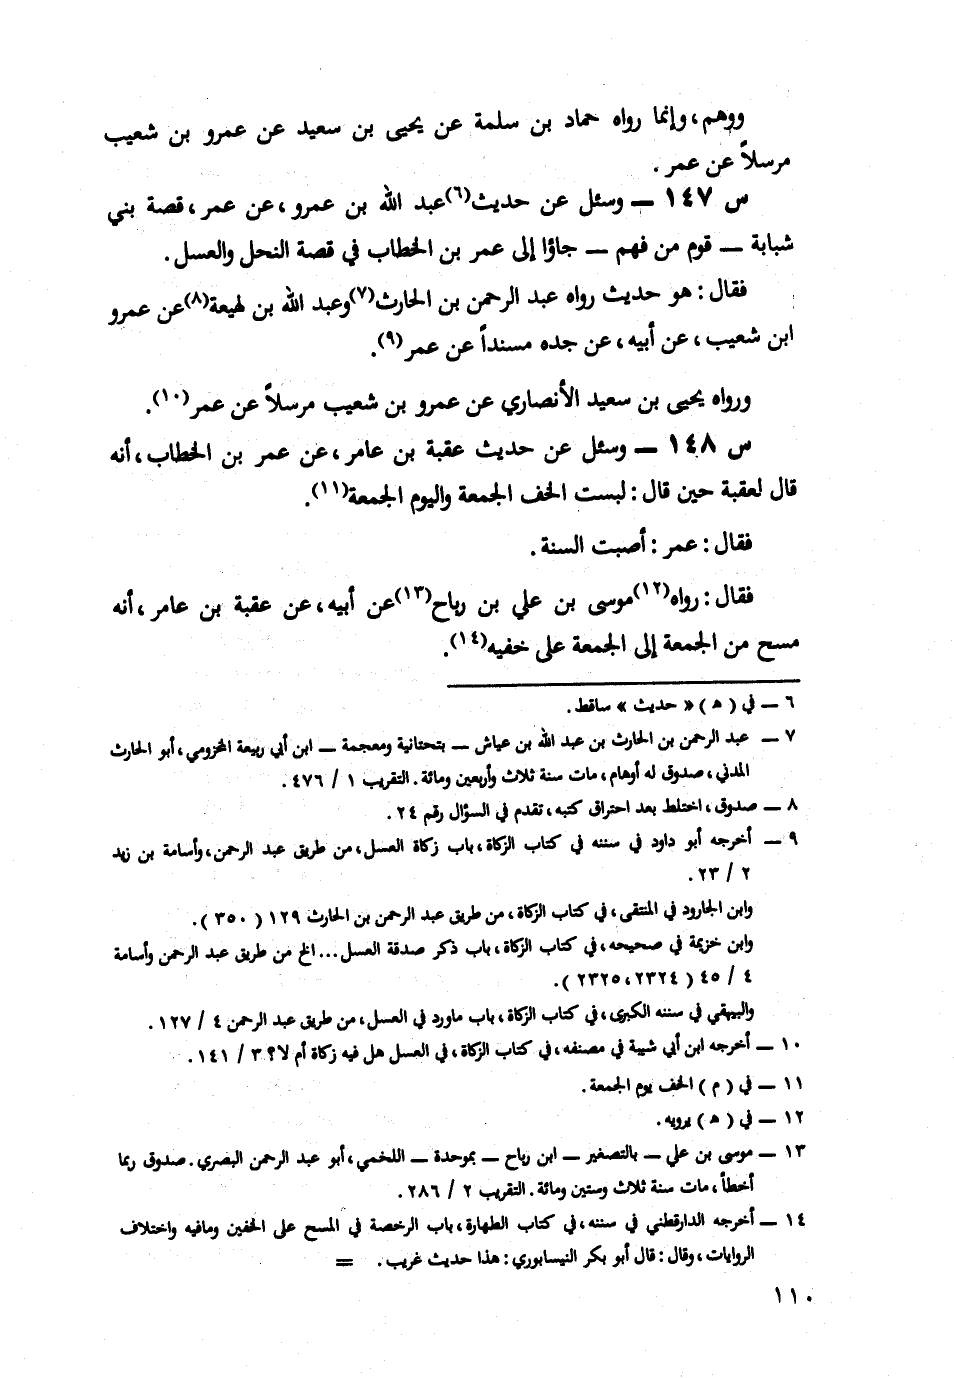 ووهم، وإنما رواه حماد بن سلمة عن يحيى بن سعيد عن عمرو بن شعيب
مرسلاً عن عمر .
س ١٤٧ — وسئل عن حديث(٦)عبد الله بن عمرو ، عن عمر ، قصة بني
شبابة — قوم من فهم — جاؤا إلى عمر بن الخطاب في قصة النحل والعسل .
فقال : هو حديث رواه عبد الرحمن بن الحارث(٧)وعبد الله بن لهيعة(٨)عن عمرو
ابن شعيب ، عن أبيه ، عن جده مسنداً عن عمر (٩).
ورواه يحيى بن سعيد الأنصاري عن عمرو بن شعيب مرسلاً عن عمر (١٠).
س ١٤٨ — وسئل عن حديث عقبة بن عامر ، عن عمر بن الخطاب ، أنه
قال لعقبة حين قال : لبست الخف الجمعة واليوم الجمعة(١١).
فقال : عمر : أصبت السنة .
فقال : رواه(١٢)موسى بن علي بن رباح(١٣)عن أبيه ، عن عقبة بن عامر ، أنه
مسح من الجمعة إلى الجمعة على خفيه(١٤).
٦ — في ( هـ ) « حديث » ساقط .
٧ — عبد الرحمن بن الحارث بن عبد الله بن عياش — بتحتانية ومعجمة — ابن أبي ربيعة المخزومي ، أبو الحارث
المدني ، صدوق له أوهام ، مات سنة ثلاث وأربعين ومائة . التقريب ١ / ٤٧٦ .
٨ — صدوق ، اختلط بعد احتراق كتبه ، تقدم في السؤال رقم ٢٤ .
٩ — أخرجه أبو داود في سننه في كتاب الزكاة ، باب زكاة العسل ، من طريق عبد الرحمن ، وأسامة بن زيد
٢ / ٢٣ .
وابن الجارود في المنتقى ، في كتاب الزكاة ، من طريق عبد الرحمن بن الحارث ١٢٩ ( ٣٥٠ ) .
وابن خزيمة في صحيحه ، في كتاب الزكاة ، باب ذكر صدقة العسل ... الخ من طريق عبد الرحمن وأسامة
٤ / ٤٥ ( ٢٣٢٤ ، ٢٣٢٥ ) .
والبيهقي في سننه الكبرى ، في كتاب الزكاة ، باب ماورد في العسل ، من طريق عبد الرحمن ٤ / ١٢٧ .
١٠ — أخرجه ابن أبي شيبة في مصنفه ، في كتاب الزكاة ، في العسل هل فيه زكاة أم لا؟ ٣ / ١٤١ .
١١ — في ( م ) الخف يوم الجمعة .
١٢ — في ( هـ ) يرويه .
١٣ — موسى بن علي — بالتصغير — ابن رباح — بموحدة — اللخمي ، أبو عبد الرحمن البصري . صدوق ربما
أخطأ ، مات سنة ثلاث وستين ومائة . التقريب ٢ / ٢٨٦ .
١٤ — أخرجه الدارقطني في سننه ، في كتاب الطهارة ، باب الرخصة في المسح على الخفين ومافيه واختلاف
الروايات ، وقال : قال أبو بكر النيسابوري : هذا حديث غريب . =
١١٠